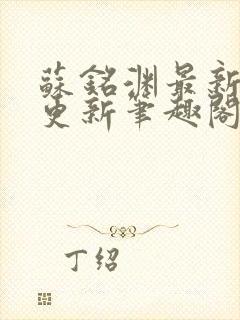 蘇銘淵最新
更新筆趣閣
丁绍